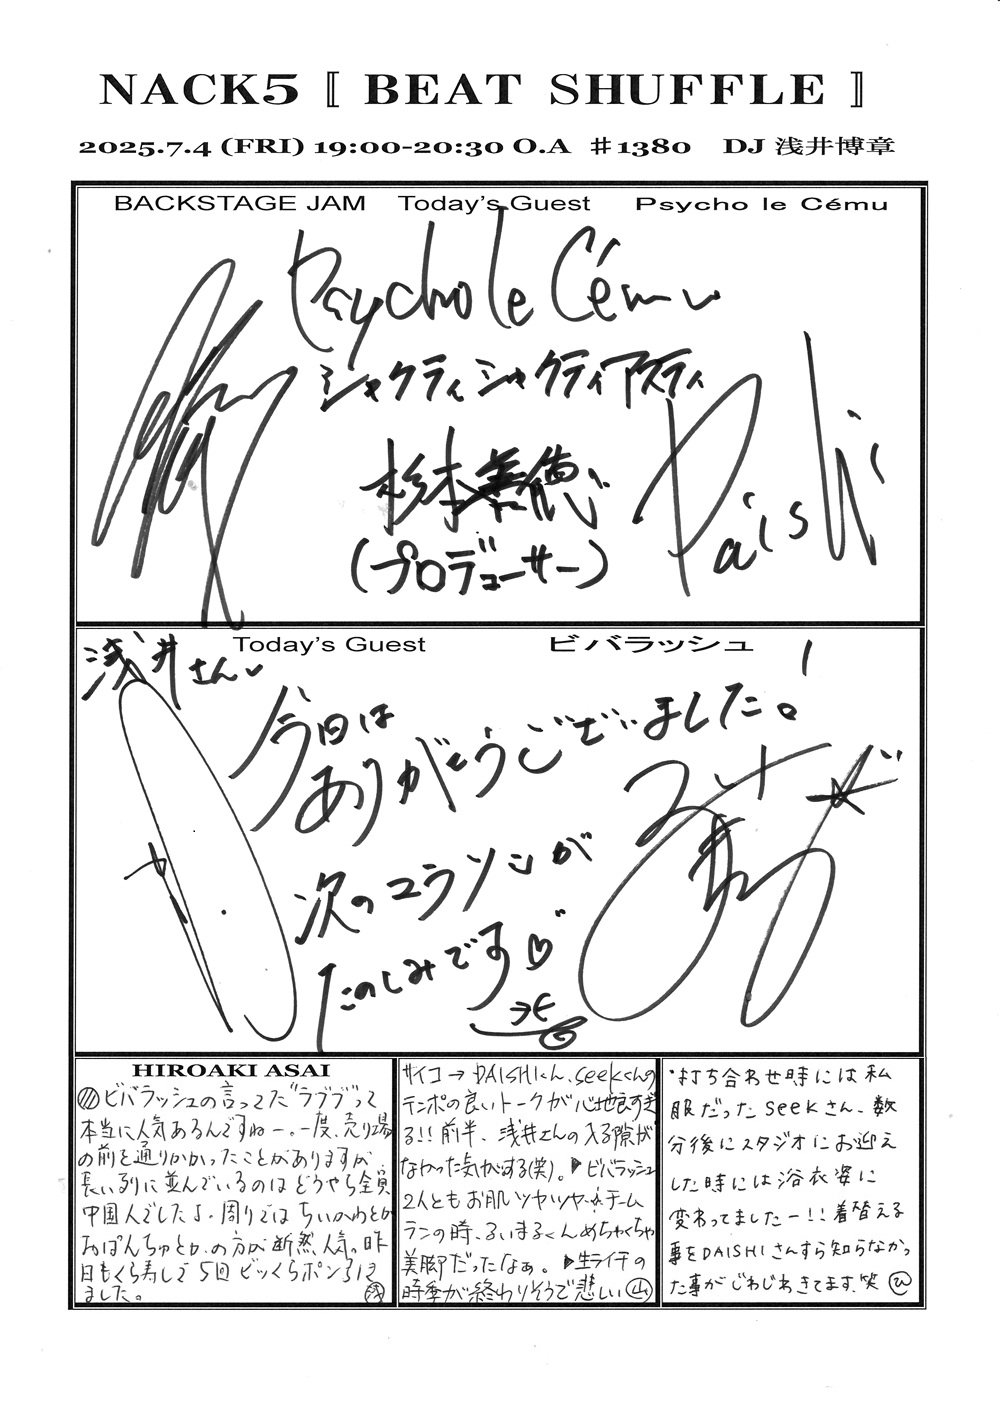 NACK5 〚 BEAT SHUFFLE 〛
2025.7.4 (FRI) 19:00-20:30 O.A ♯1380 DJ 浅井博章
BACKSTAGE JAM Today's Guest Psycho le Cému
Psycho le Cému
シャクティシャクティアスティ
杉本善徳
(プロデューサー)
Daishi
Today's Guest ビバラッシュ
浅井さん
今回は
ありがとうございました!
次のコラソンが
たのしみです♡
HIROAKI ASAI
ビバラッシュの言ってた"ラブブ"って
本当に人気あるんですねー。一度、売り場
の前を通りかかったことがありますが、
長い列に並んでいるのはどうやら全員
中国人でしたよ。周りではちいかわとか
おぱんちゅとか、の方が断然人気。昨
日もくら寿しで5回ビッくらポン引け
ました。 浅
サイコ→DAISHIくん、seekくんの
テンポの良いトークが心地良すぎ
る!!前半、浅井さんの入る隙が
なかった気がする(笑)。▶ビバラッシュ
2人ともお肌ツヤツヤ☆チーム
ランの時、るいまるくんめちゃくちゃ
美脚だったなぁ。▶生ライチの
時季が終わりそうで悲しい 山
・打ち合わせ時には私
服だったseekさん、数
分後にスタジオにお迎え
した時には浴衣姿に
変わってましたー!!着替える
事をDAISHIさんすら知らなかっ
た事がじわじわきてます、笑 ひ